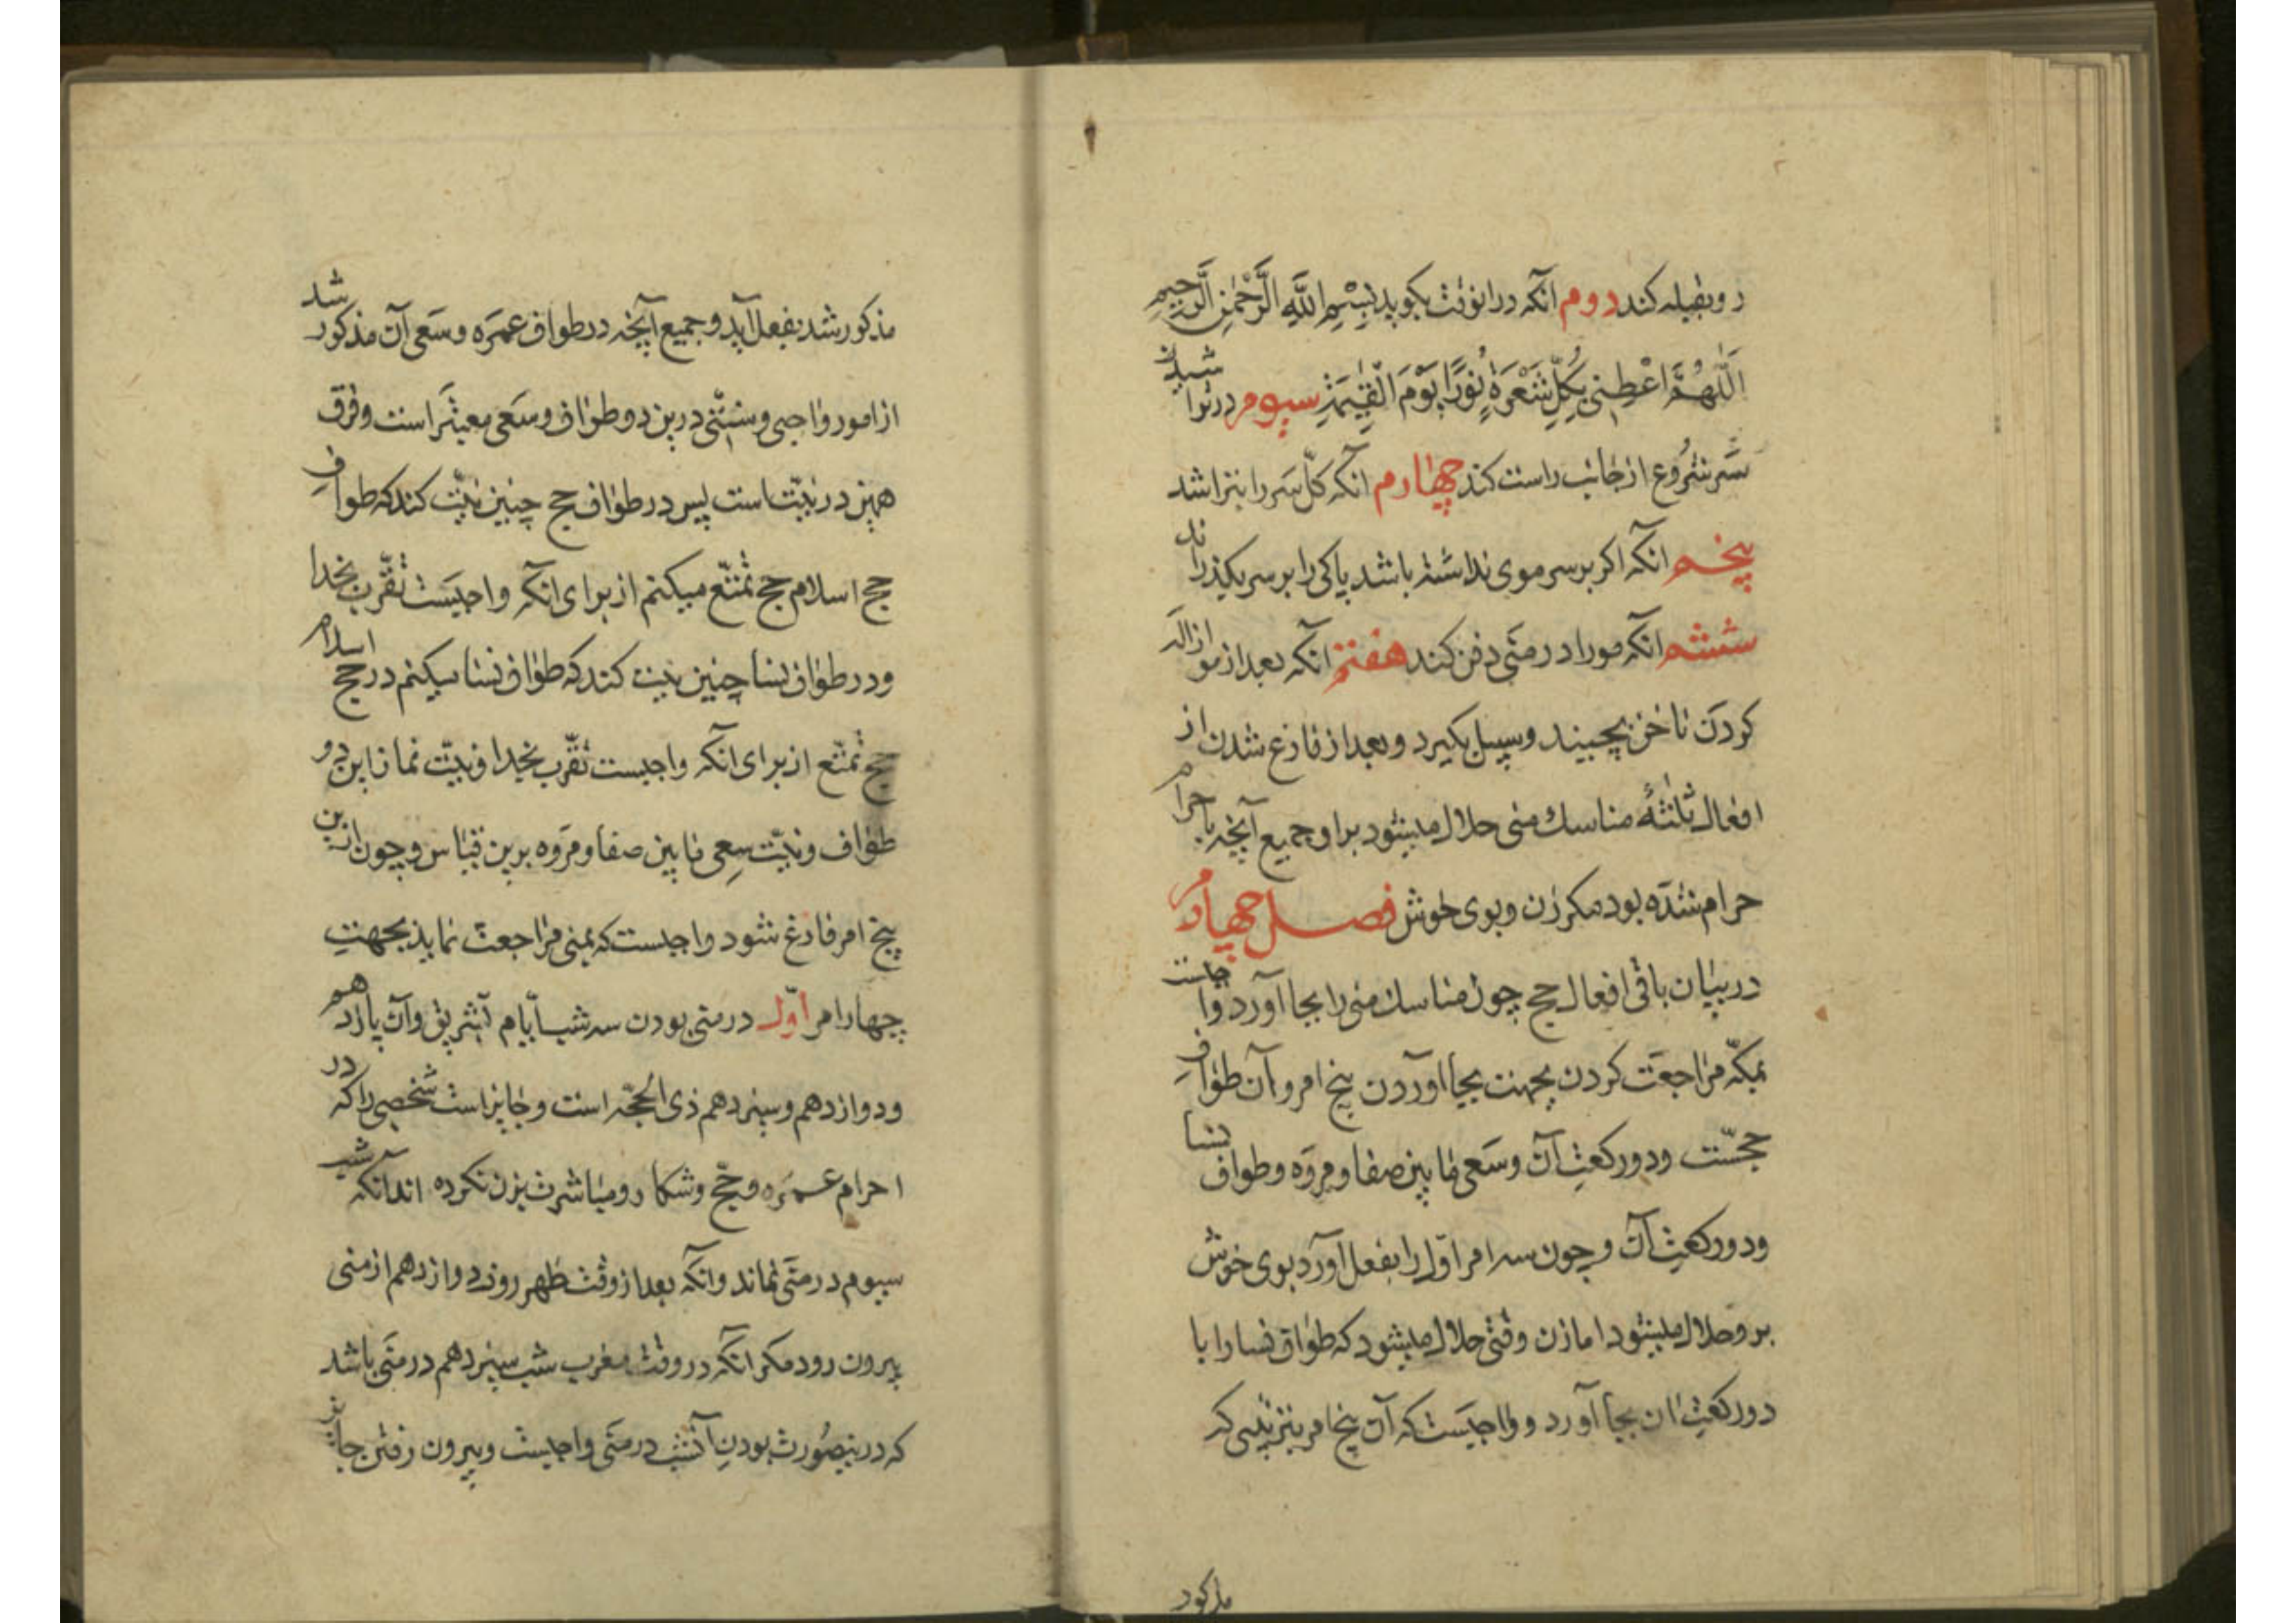 رو بقبله کند دوم آنکه در آنوقت بگوید بِسْمِ اللَّهِ الرَّحْمٰنِ الرَّحیمِ
اَللّٰهُمَّ اَعْطِنی بِکُلِّ شَعْرَةٍ نُورًا یَوْمَ الْقِیٰمَةِ سیوم در تراشیدن
سَر شُروع از جانب راست کند چهارم آنکه کلّ سَر را بتراشد
پنجم آنکه اکر بر سر موی نداشته باشد پاکی را بر سر بکذراند
ششم آنکه مو را در منَی دفن کند هفتم آنکه بعد از ازالَه مو
کردن ناخن بچیند و سبیل بکیرد و بعد از فارغ شدن از
افعال ثلٰثهٔ مناسك منی حلال میشود بر او جمیع آنچه باحرام
حرام شدَه بود مکر زن و بوی خوش فصل چهارم
در بیان باقی افعال حج چون مناسك منی را بجا آورد واجبست
بمکّه مراجعَت کردن بجهت بجا آوردن پنج امر و آن طوافِ
حجّست و دو رکعتِ آن و سَعی مابین صفا و مروَه و طواف نسا
و دو رکعتِ آن و چون سه امر اوّل را بفعل آورد بوی خوش
بر و حلال میشود اما زن وقتی حلال میشود که طواف نسا را با
دو رکعتِ ان بجا آورد و واجبَست که آن پنج امر بترتیبی که
مذکور
مذکور شد بفعل آید و جمیع آنچه در طواف عمرَه و سَعی آن مذکور شد
از امور واجبی و سنّتی درین دو طواف و سَعی معتبَر است و فرق
همین در نیّتست پس در طواف حج چنین نیّت کند که طوافِ
حج اسلام حج تمتّع میکنم از برای آنکه واجبَست تقّرب بخدا
و در طواف نسا چنین نیت کند که طواف نسا میکنم در حج اسلام
حج تمتّع از برای آنکه واجبست تقّرب بخدا و نیّت نماز این دو
طواف و نیّت سِعی مابین صفا و مروَه برین قیاس و چون ازین
پنج امر فارغ شود واجبست که بمنی مراجعت نماید بجهتِ
چهار امر اوّل در منَی بودن سه شب اَیّام تشریق و آن یازدهم
و دوازدهم و سیزدهم ذی الحجّه است و جایز است شخصی را که در
احرام عمرَه و حجّ و شکار و مباشرت بزن نکرده اند آنکه شب
سیوم در منَی نماند و انکه بعد از وقت ظهر روز دوازدهم از منی
بیرون رود مکر آنکه در وقت مغرب شب سیزدهم در منَی باشد
که درینصُورت بودنِ آنشب در منَی واجبست و بیرون رفتن جایز